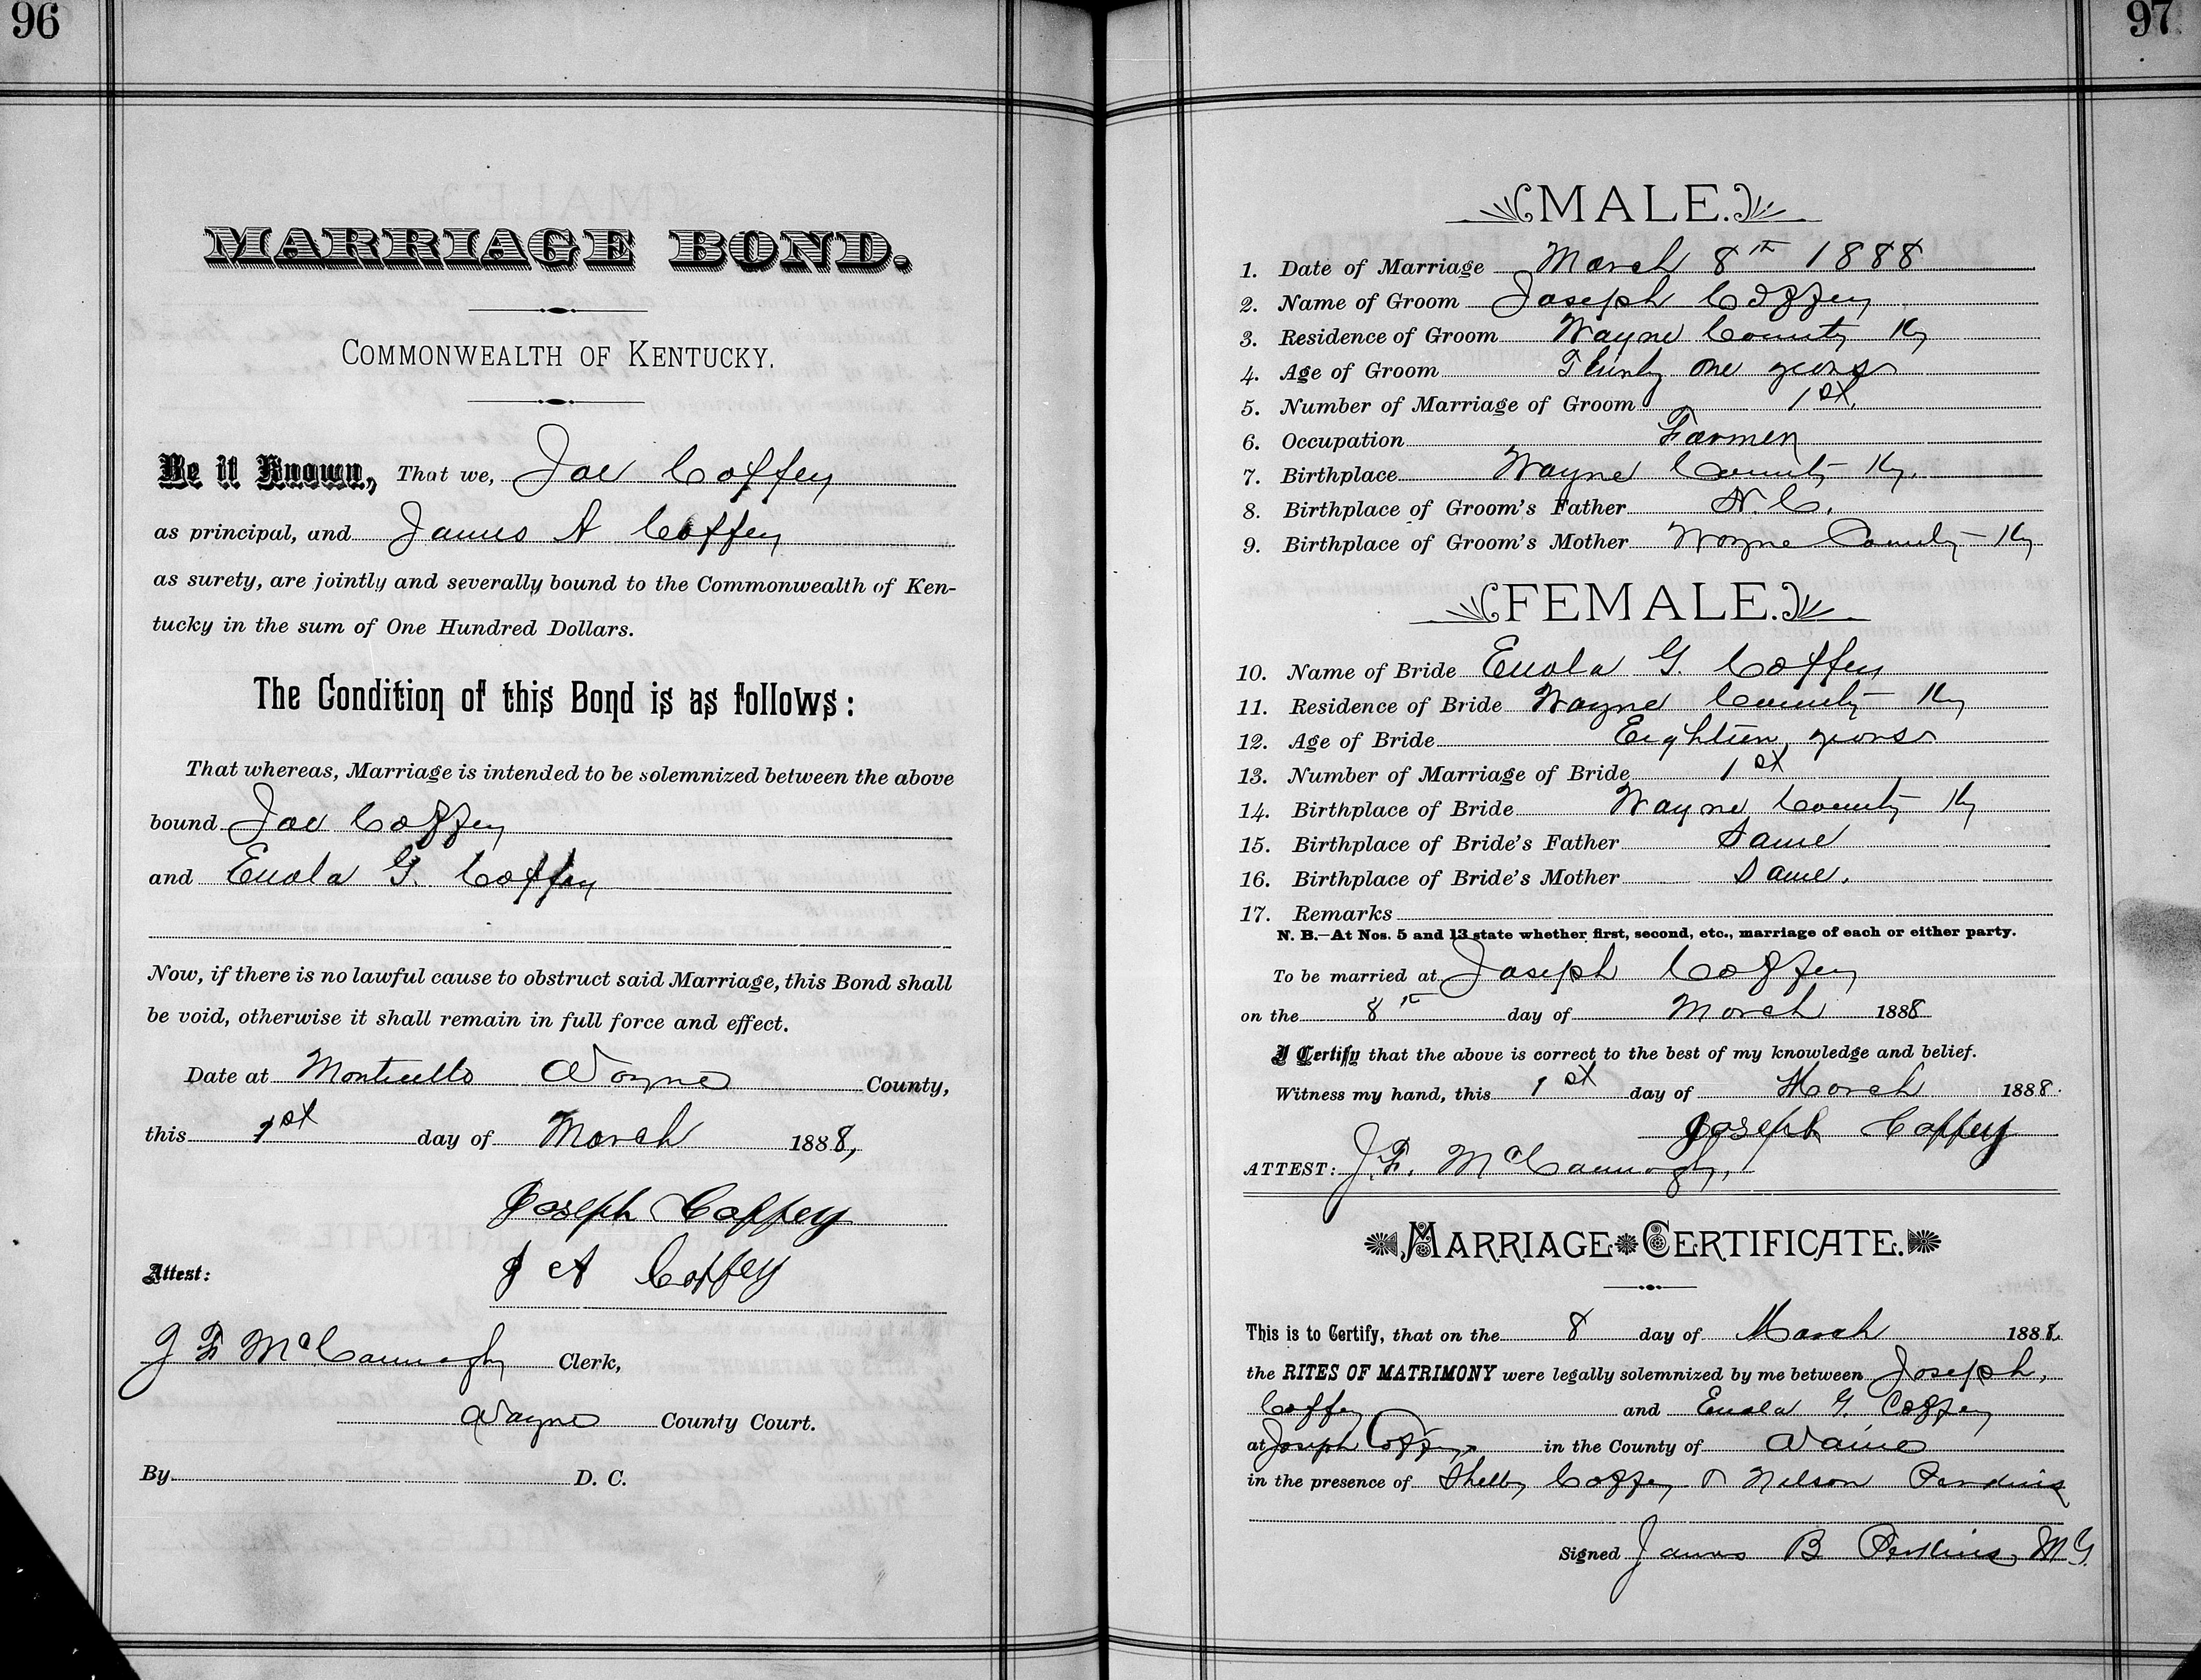 96
MARRIAGE BOND.
COMMONWEALTH OF KENTUCKY.
Be it Known, That we, Joe Coffey
as principal, and James A Coffey
as surety, are jointly and severally bound to the Commonwealth of Ken-
tucky in the sum of One Hundred Dollars.
The Condition of this Bond is as follows:
That whereas, Marriage is intended to be solemnized between the above
bound Joe Coffey
and Enola G. Coffey
Now, if there is no lawful cause to obstruct said Marriage, this Bond shall
be void, otherwise it shall remain in full force and effect.
Date at Monticello Wayne County,
this 1st day of March 1888,
Joseph Coffey
J A Coffey
Attest:
J F Clerk,
Wayne County Court.
By D. C.
97
MALE.
1. Date of Marriage March 8th 1888
2. Name of Groom Joseph Coffey
3. Residence of Groom Wayne County Ky
4. Age of Groom one years
5. Number of Marriage of Groom 1st.
6. Occupation Farmer
7. Birthplace Wayne County Ky.
8. Birthplace of Groom's Father N. C.
9. Birthplace of Groom's Mother Wayne County Ky
FEMALE.
10. Name of Bride Enola G. Coffey
11. Residence of Bride Wayne County Ky
12. Age of Bride Eighteen years
13. Number of Marriage of Bride 1st
14. Birthplace of Bride Wayne County Ky
15. Birthplace of Bride's Father Same
16. Birthplace of Bride's Mother Same.
17. Remarks
N. B.—At Nos. 5 and 13 state whether first, second, etc., marriage of each or either party.
To be married at Joseph Coffey
on the 8th day of March 1888
I Certify that the above is correct to the best of my knowledge and belief.
Witness my hand, this 1st day of March 1888.
Joseph Coffey
ATTEST: J. F.
MARRIAGE CERTIFICATE.
This is to Certify, that on the 8 day of March 1888.
the RITES OF MATRIMONY were legally solemnized by me between Joseph,
Coffey and Enola G. Coffey
at Joseph Coffeys in the County of Waine
in the presence of Shelby Coffey & Nelson Perkins
Signed James B Perkins, M G.